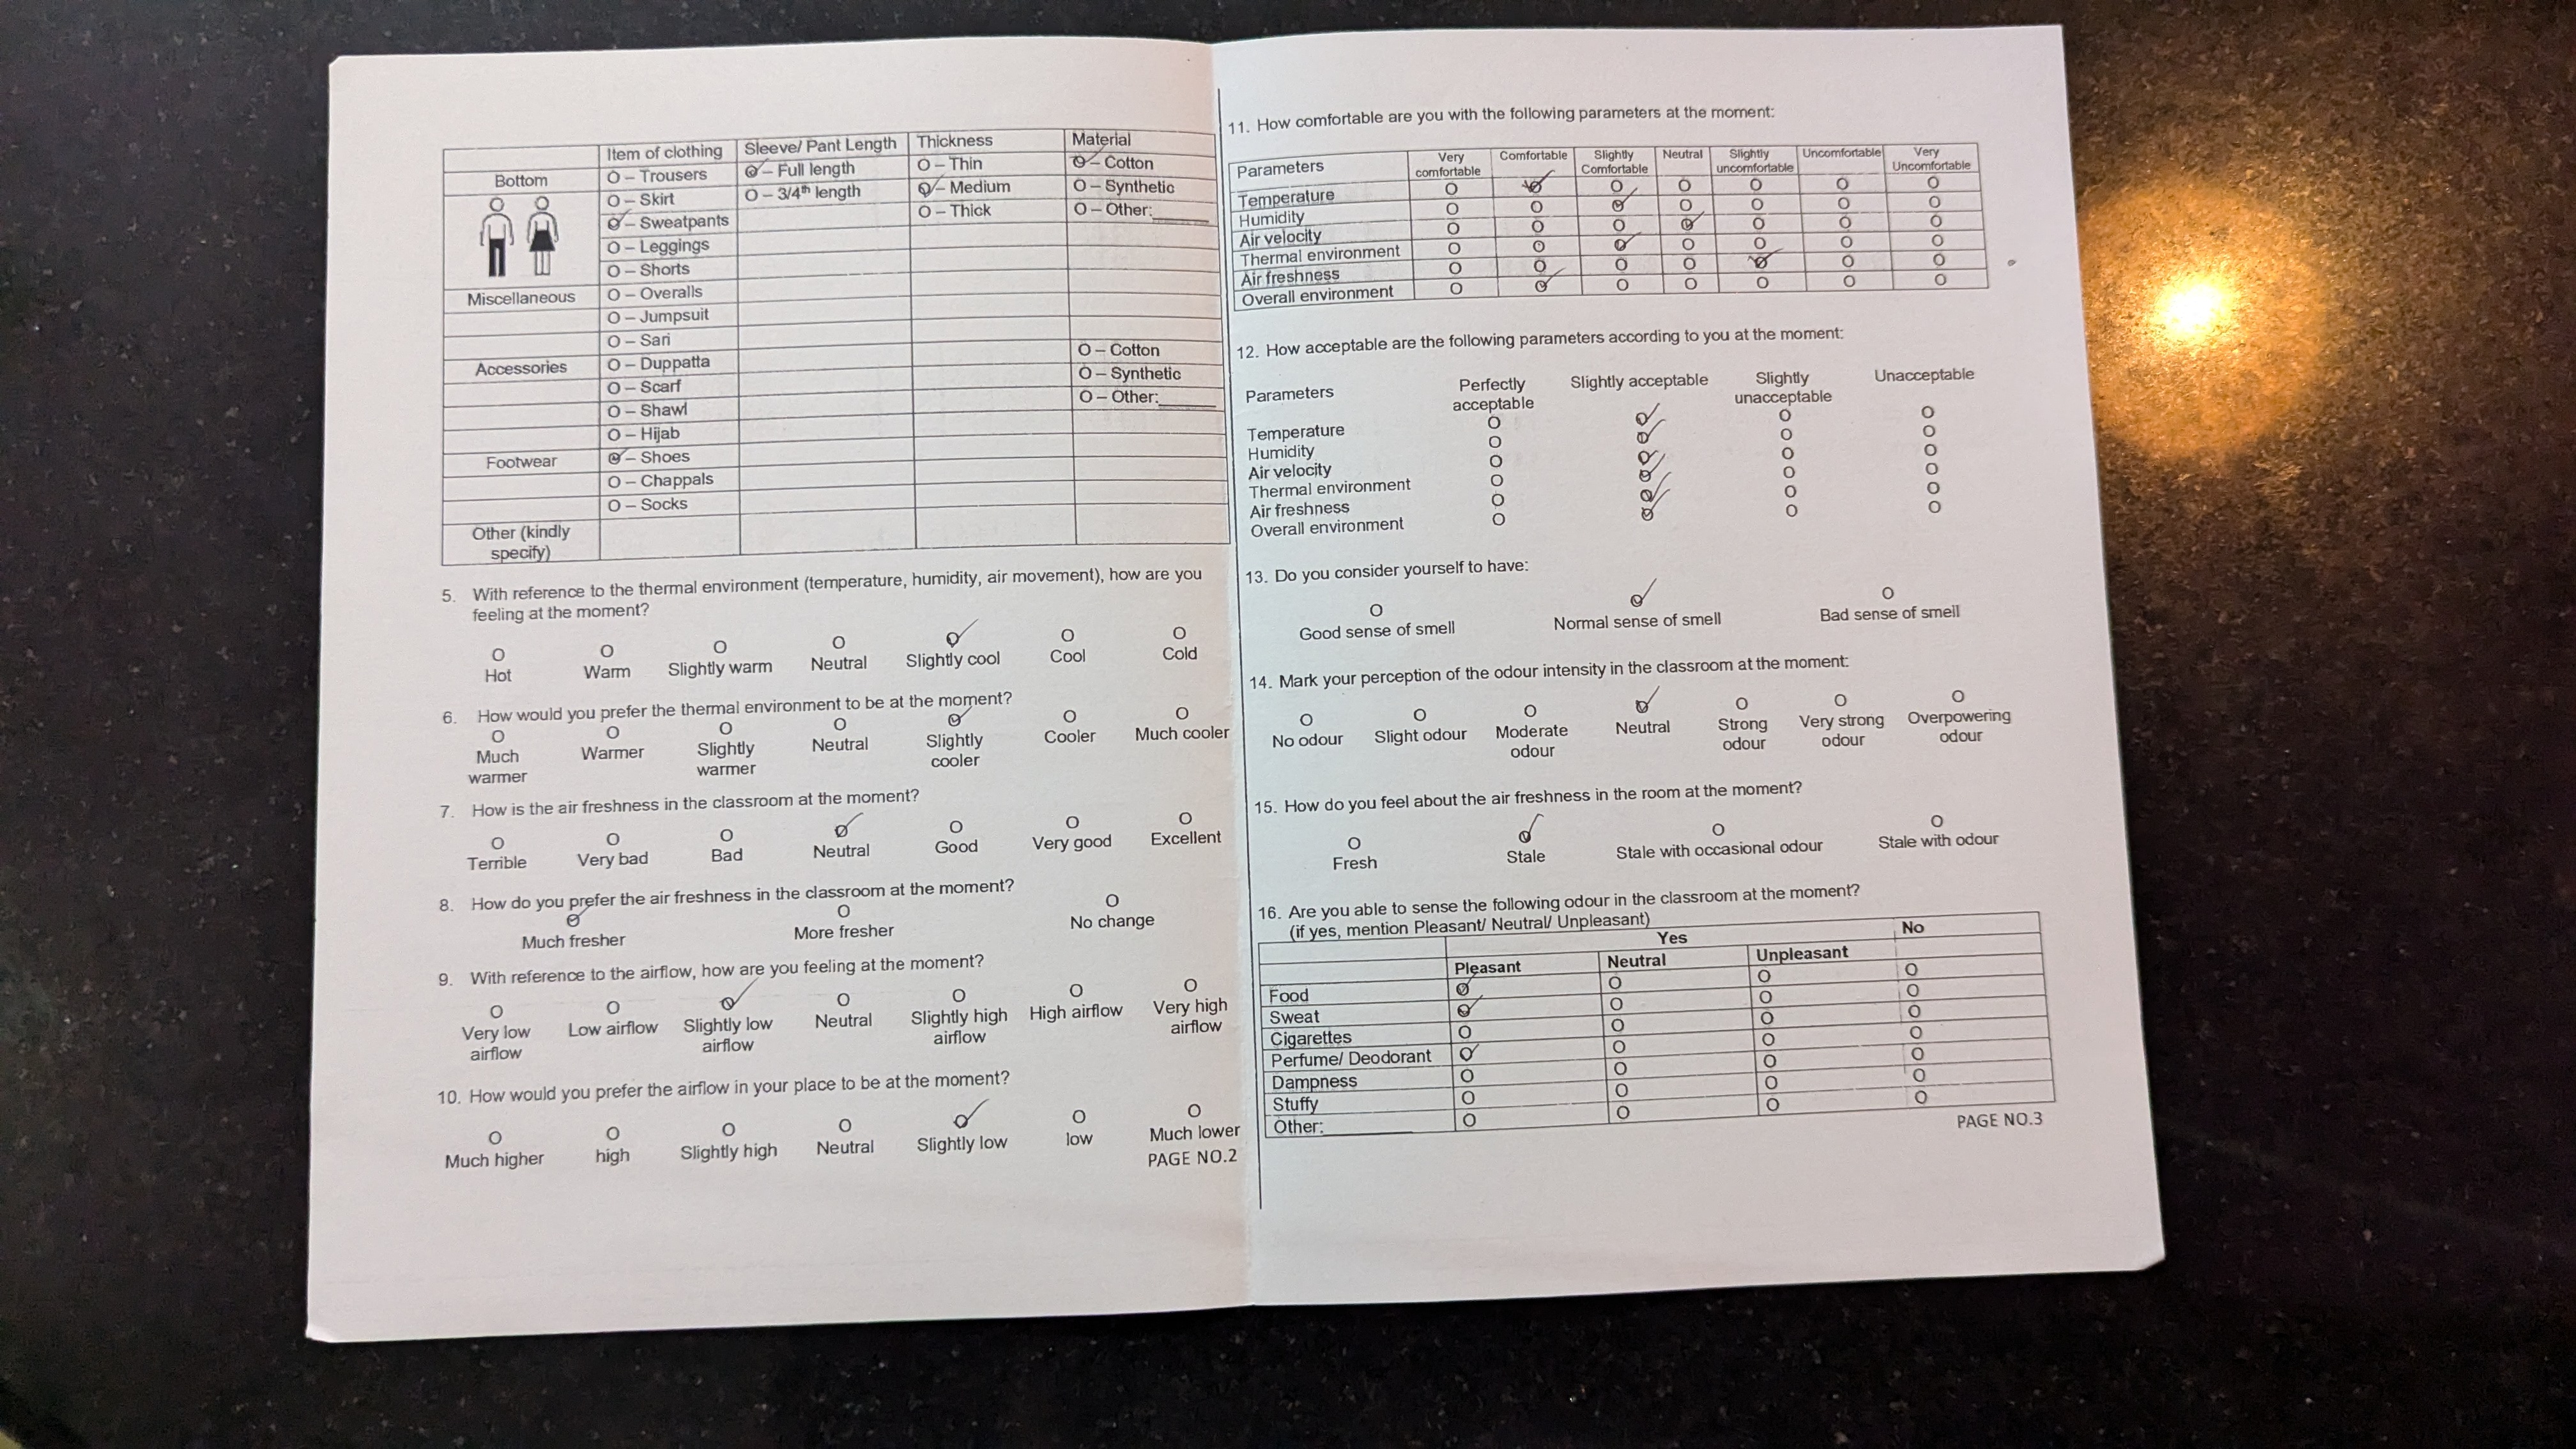 Item of clothing Sleeve/ Pant Length Thickness Material
Bottom O – Trousers O – Full length O – Thin O – Cotton
O – Skirt O – 3/4th length O – Medium O – Synthetic
O – Sweatpants O – Thick O – Other:______
O – Leggings
O – Shorts
Miscellaneous O – Overalls
O – Jumpsuit
O – Sari
Accessories O – Duppatta O – Cotton
O – Scarf O – Synthetic
O – Shawl O – Other:______
O – Hijab
Footwear O – Shoes
O – Chappals
O – Socks
Other (kindly
specify)
5. With reference to the thermal environment (temperature, humidity, air movement), how are you
feeling at the moment?
O O O O O O O
Hot Warm Slightly warm Neutral Slightly cool Cool Cold
6. How would you prefer the thermal environment to be at the moment?
O O O O O O O
Much Warmer Slightly Neutral Slightly Cooler Much cooler
warmer warmer cooler
7. How is the air freshness in the classroom at the moment?
O O O O O O O
Terrible Very bad Bad Neutral Good Very good Excellent
8. How do you prefer the air freshness in the classroom at the moment?
O O O
Much fresher More fresher No change
9. With reference to the airflow, how are you feeling at the moment?
O O O O O O O
Very low Low airflow Slightly low Neutral Slightly high High airflow Very high
airflow airflow airflow airflow
10. How would you prefer the airflow in your place to be at the moment?
O O O O O O O
Much higher high Slightly high Neutral Slightly low low Much lower
PAGE NO.2
11. How comfortable are you with the following parameters at the moment:
Parameters Very Comfortable Slightly Neutral Slightly Uncomfortable Very
comfortable Comfortable uncomfortable Uncomfortable
Temperature O O O O O O O
Humidity O O O O O O O
Air velocity O O O O O O O
Thermal environment O O O O O O O
Air freshness O O O O O O O
Overall environment O O O O O O O
12. How acceptable are the following parameters according to you at the moment:
Parameters Perfectly Slightly acceptable Slightly Unacceptable
acceptable unacceptable
Temperature O O O O
Humidity O O O O
Air velocity O O O O
Thermal environment O O O O
Air freshness O O O O
Overall environment O O O O
13. Do you consider yourself to have:
O O O
Good sense of smell Normal sense of smell Bad sense of smell
14. Mark your perception of the odour intensity in the classroom at the moment:
O O O O O O O
No odour Slight odour Moderate Neutral Strong Very strong Overpowering
odour odour odour odour
15. How do you feel about the air freshness in the room at the moment?
O O O O
Fresh Stale Stale with occasional odour Stale with odour
16. Are you able to sense the following odour in the classroom at the moment?
(if yes, mention Pleasant/ Neutral/ Unpleasant)
Yes No
Pleasant Neutral Unpleasant
Food O O O O
Sweat O O O O
Cigarettes O O O O
Perfume/ Deodorant O O O O
Dampness O O O O
Stuffy O O O O
Other:________ O O O O
PAGE NO.3